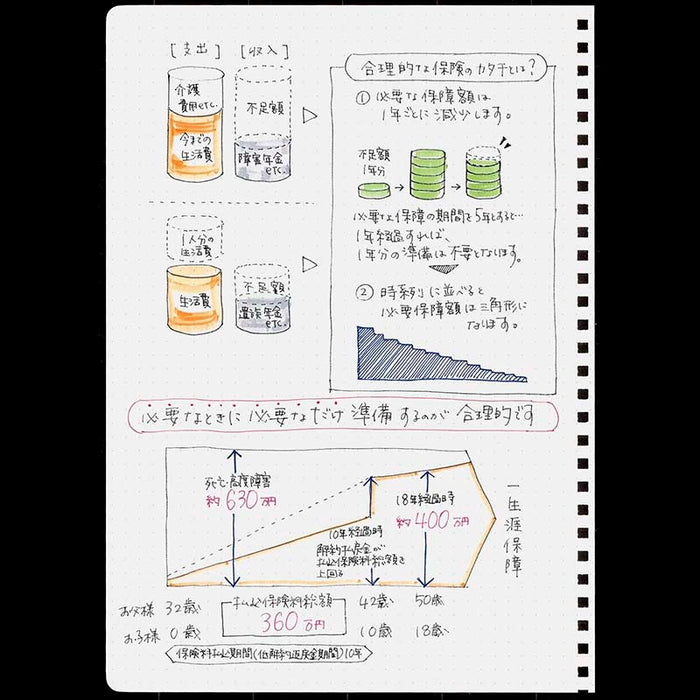 [支出] [収入]
介護
費用etc.
今までの
生活費
不足額
障害年金
etc.
1人分の
生活費
生活費
不足額
遺族年金
etc.
合理的な保険のカタチとは?
① 必要な保障額は
1年ごとに減少します。
不足額
1年分
必要な保障の期間を5年とすると…
1年経過すれば、
1年分の準備は不要となります。
② 時系列に並べると
必要保障額は三角形に
なります。
必要なときに必要なだけ準備するのが合理的です
死亡・高度障害
約630万円
18年経過時
約400万円
10年経過時
解約払戻金が
払込保険料総額を
上回る
一生涯保障
お父様 32歳 42歳 50歳
払込保険料総額
360万円
お子様 0歳 10歳 18歳
保険料払込期間(低解約返戻金期間)10年